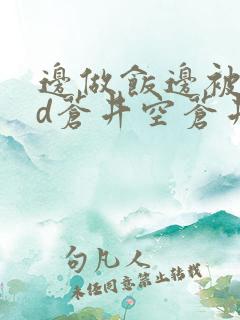 邊做飯邊被
d蒼井空蒼井
句凡人
未经同意禁止转载